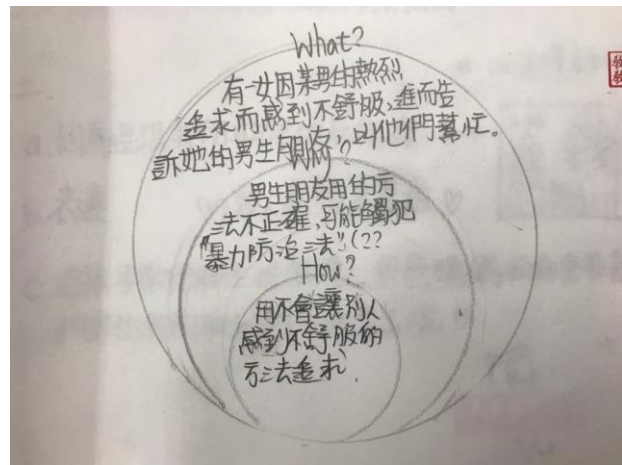 What?
有一女因某男的熱烈
追求而感到不舒服,進而告
訴她的男生朋友,叫他們幫忙。
Why?
男生朋友用的方
法不正確,可能觸犯
"暴力防治法"(??
How?
用不會讓別人
感到不舒服的
方法追求